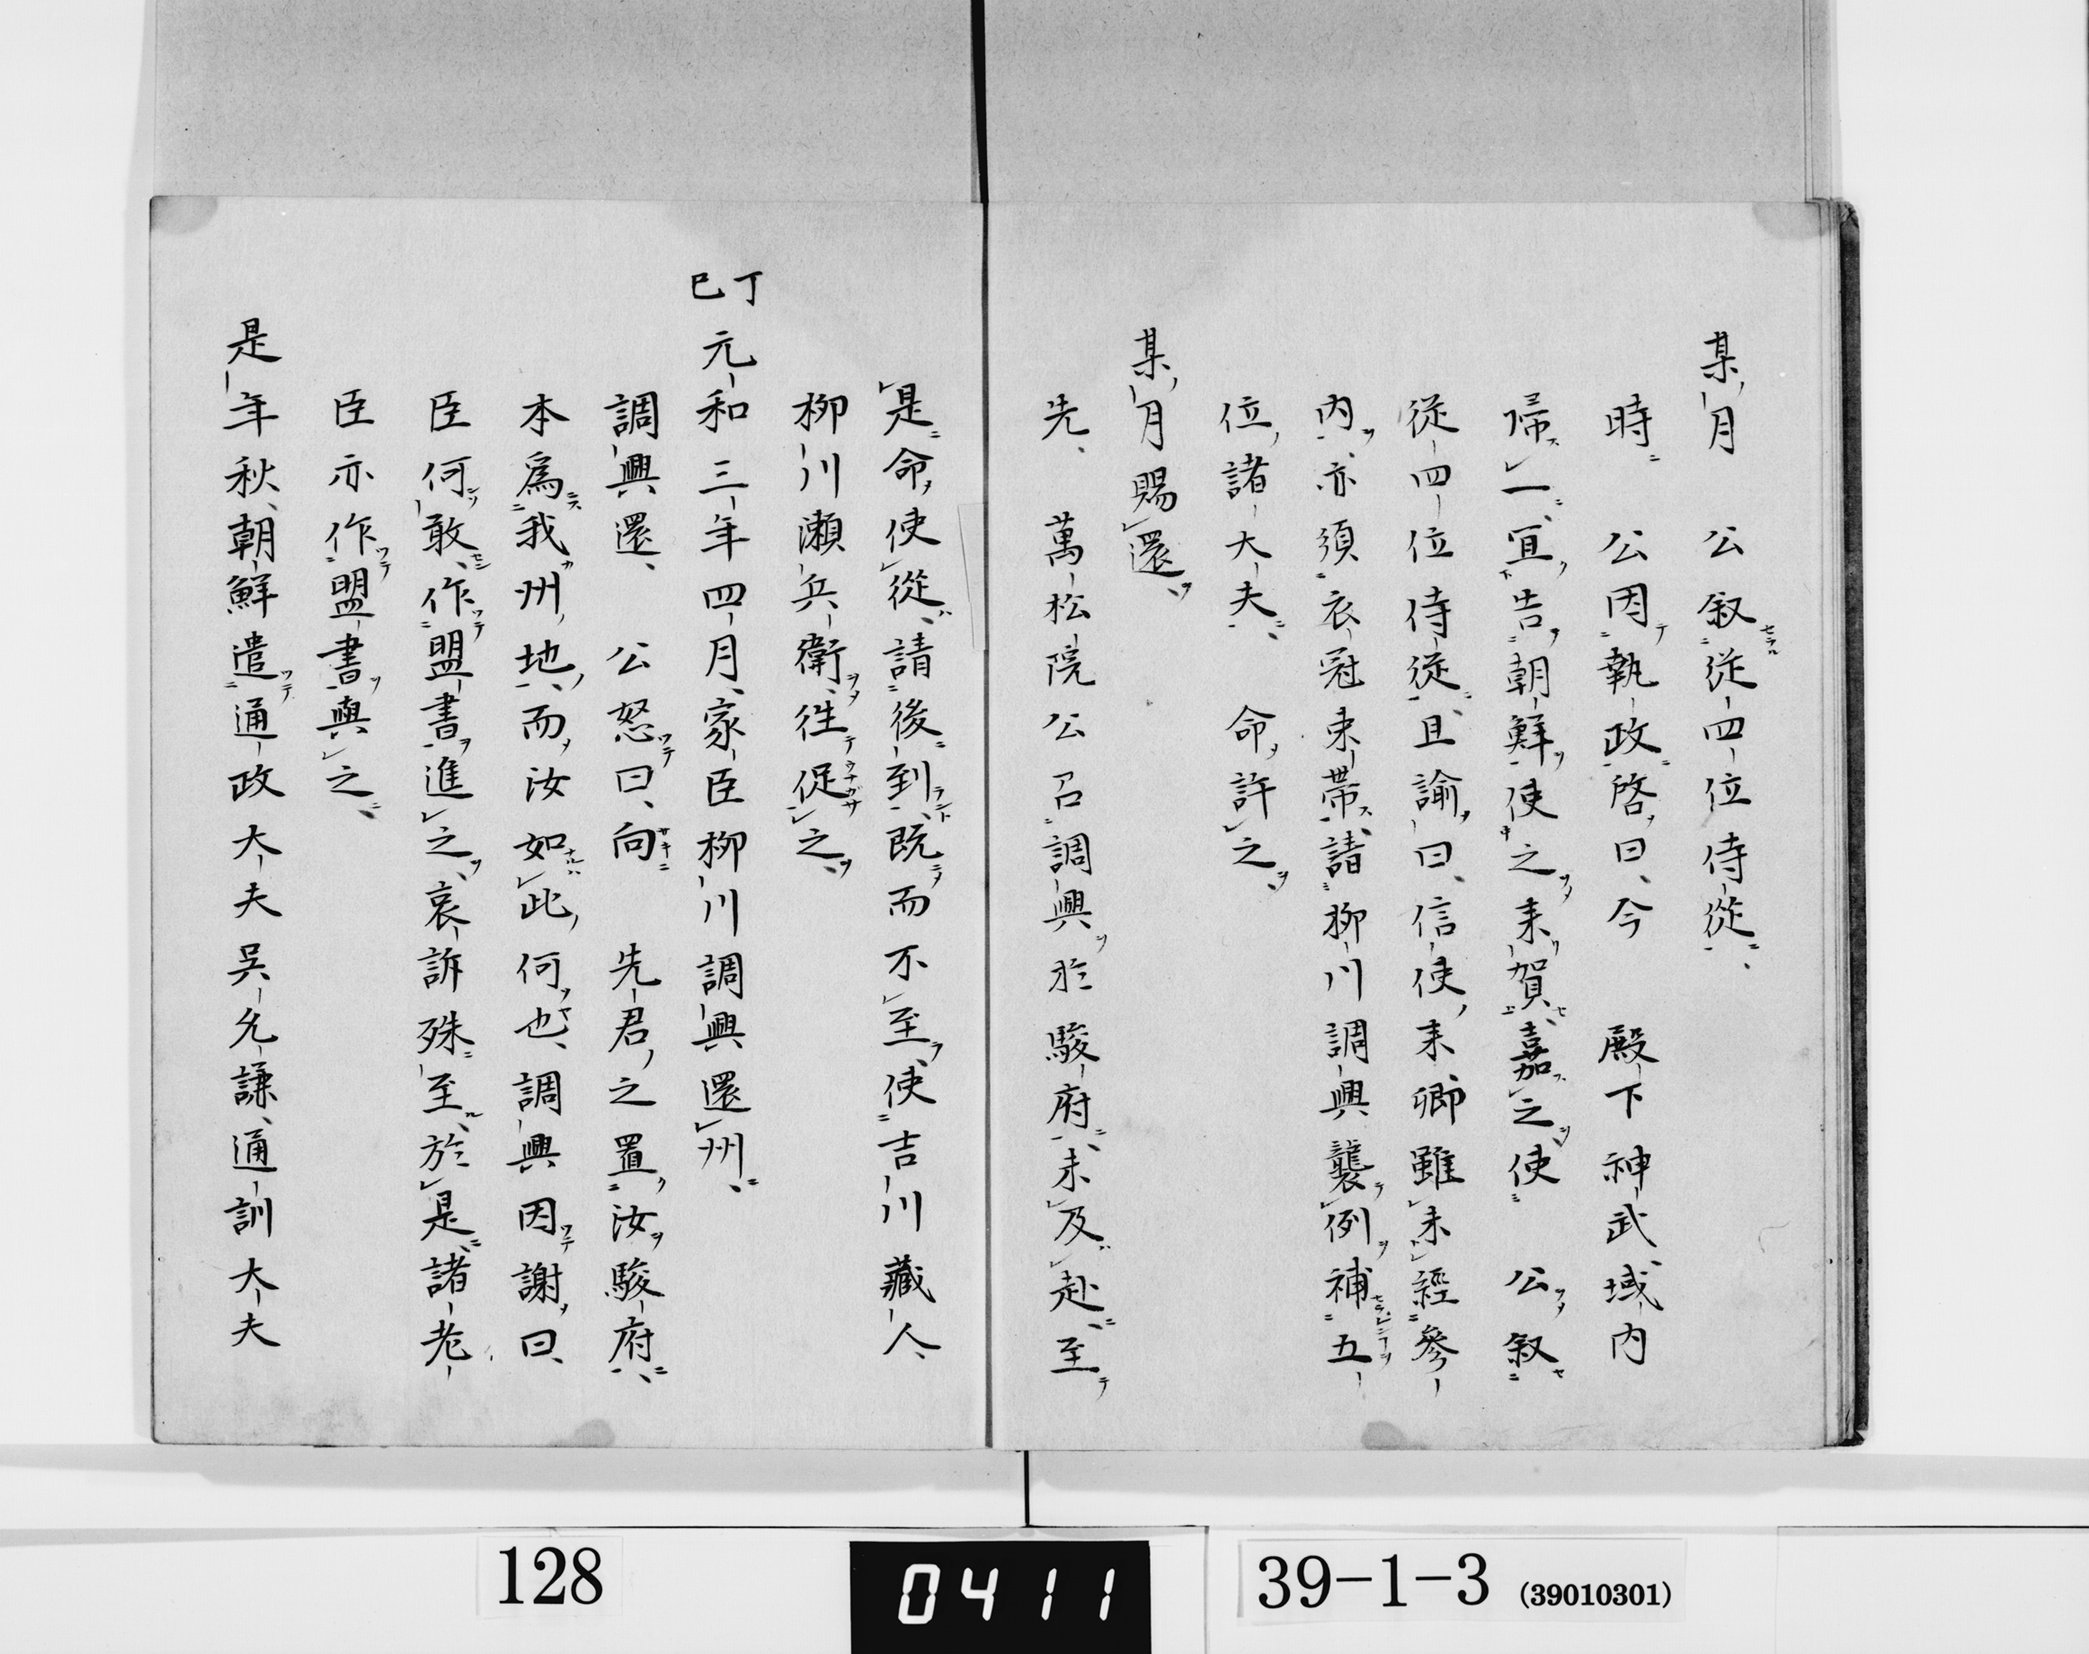 某月　公叙從四位侍從
時　公因執政啓曰今　殿下神武域內
帰一宜告朝鮮使之来賀嘉之使　公叙
從四位侍從且諭曰信使来卿雖未經參
內亦須衣冠束帶請柳川調興襲例補五
位諸大夫　命許之
某月賜還
先　萬松院公召調興於駿府未及赴至
是命使從請後到既而不至使吉川藏人
柳川瀬兵衛往促之
丁巳
元和三年四月家臣柳川調興還州
調興還　公怒曰向　先君之置汝駿府
本爲我州地而汝如此何也調興因謝曰
臣何敢作盟書進之哀訴殊至於是諸老
臣亦作盟書與之
是年秋朝鮮遣通政大夫吳允謙通訓大夫
128
0411
39-1-3 (39010301)